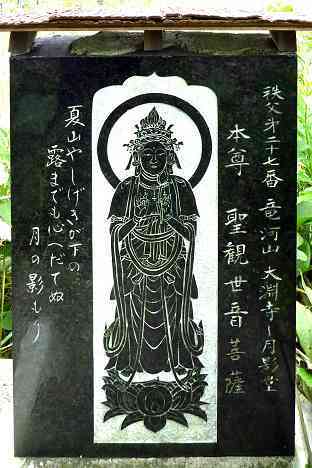 秩父第二十七番 竜河山 大渕寺 月影堂
本尊 聖観世音菩薩
夏山やしげきが下の
露までも心へだてぬ
月の影もり